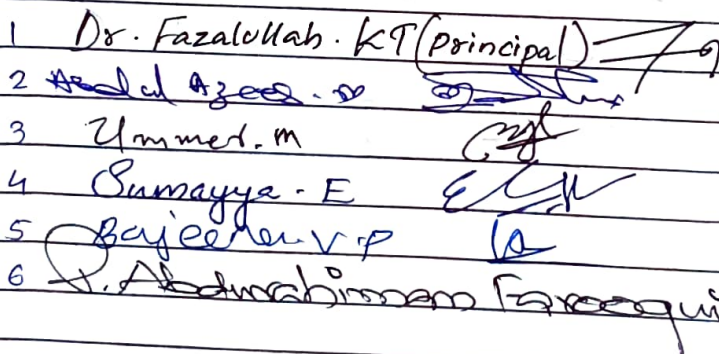 1 Dr. Fazalullah. KT (principal)
2 Abdul Azeez. P
3 Ummer. m
4 Sumayya - E
5 Bajeena V.P
6 P. Abdurahiman Farooqui